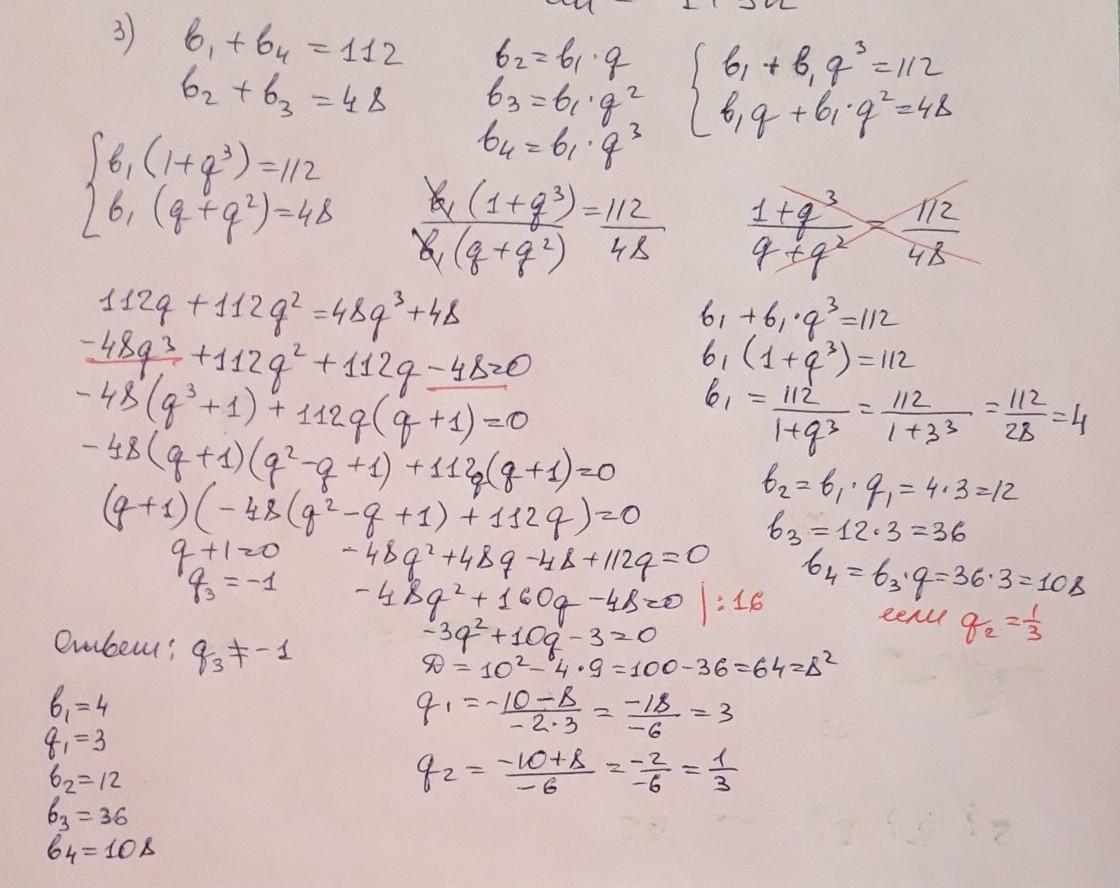 3) b₁ + b₄ = 112
b₂ + b₃ = 48
b₂ = b₁ · q
b₃ = b₁ · q²
b₄ = b₁ · q³
{ b₁ + b₁q³ = 112
b₁q + b₁ · q² = 48
{ b₁(1+q³) = 112
b₁(q+q²) = 48
b₁(1+q³)/b₁(q+q²) = 112/48
1+q³/q+q² = 112/48
112q + 112q² = 48q³ + 48
-48q³ + 112q² + 112q - 48 = 0
-48(q³+1) + 112q(q+1) = 0
-48(q+1)(q²-q+1) + 112q(q+1) = 0
(q+1)(-48(q²-q+1) + 112q) = 0
q+1=0
q₃ = -1
-48q² + 48q - 48 + 112q = 0
-48q² + 160q - 48 = 0 | : 16
-3q² + 10q - 3 = 0
D = 10² - 4·9 = 100 - 36 = 64 = 8²
q₁ = -10-8/-2·3 = -18/-6 = 3
q₂ = -10+8/-6 = -2/-6 = 1/3
b₁ + b₁·q³ = 112
b₁(1+q³) = 112
b₁ = 112/1+q³ = 112/1+3³ = 112/28 = 4
b₂ = b₁·q₁ = 4·3 = 12
b₃ = 12·3 = 36
b₄ = b₃·q = 36·3 = 108
если q₂ = 1/3
Ответ: q₃ ≠ -1
b₁ = 4
q₁ = 3
b₂ = 12
b₃ = 36
b₄ = 108